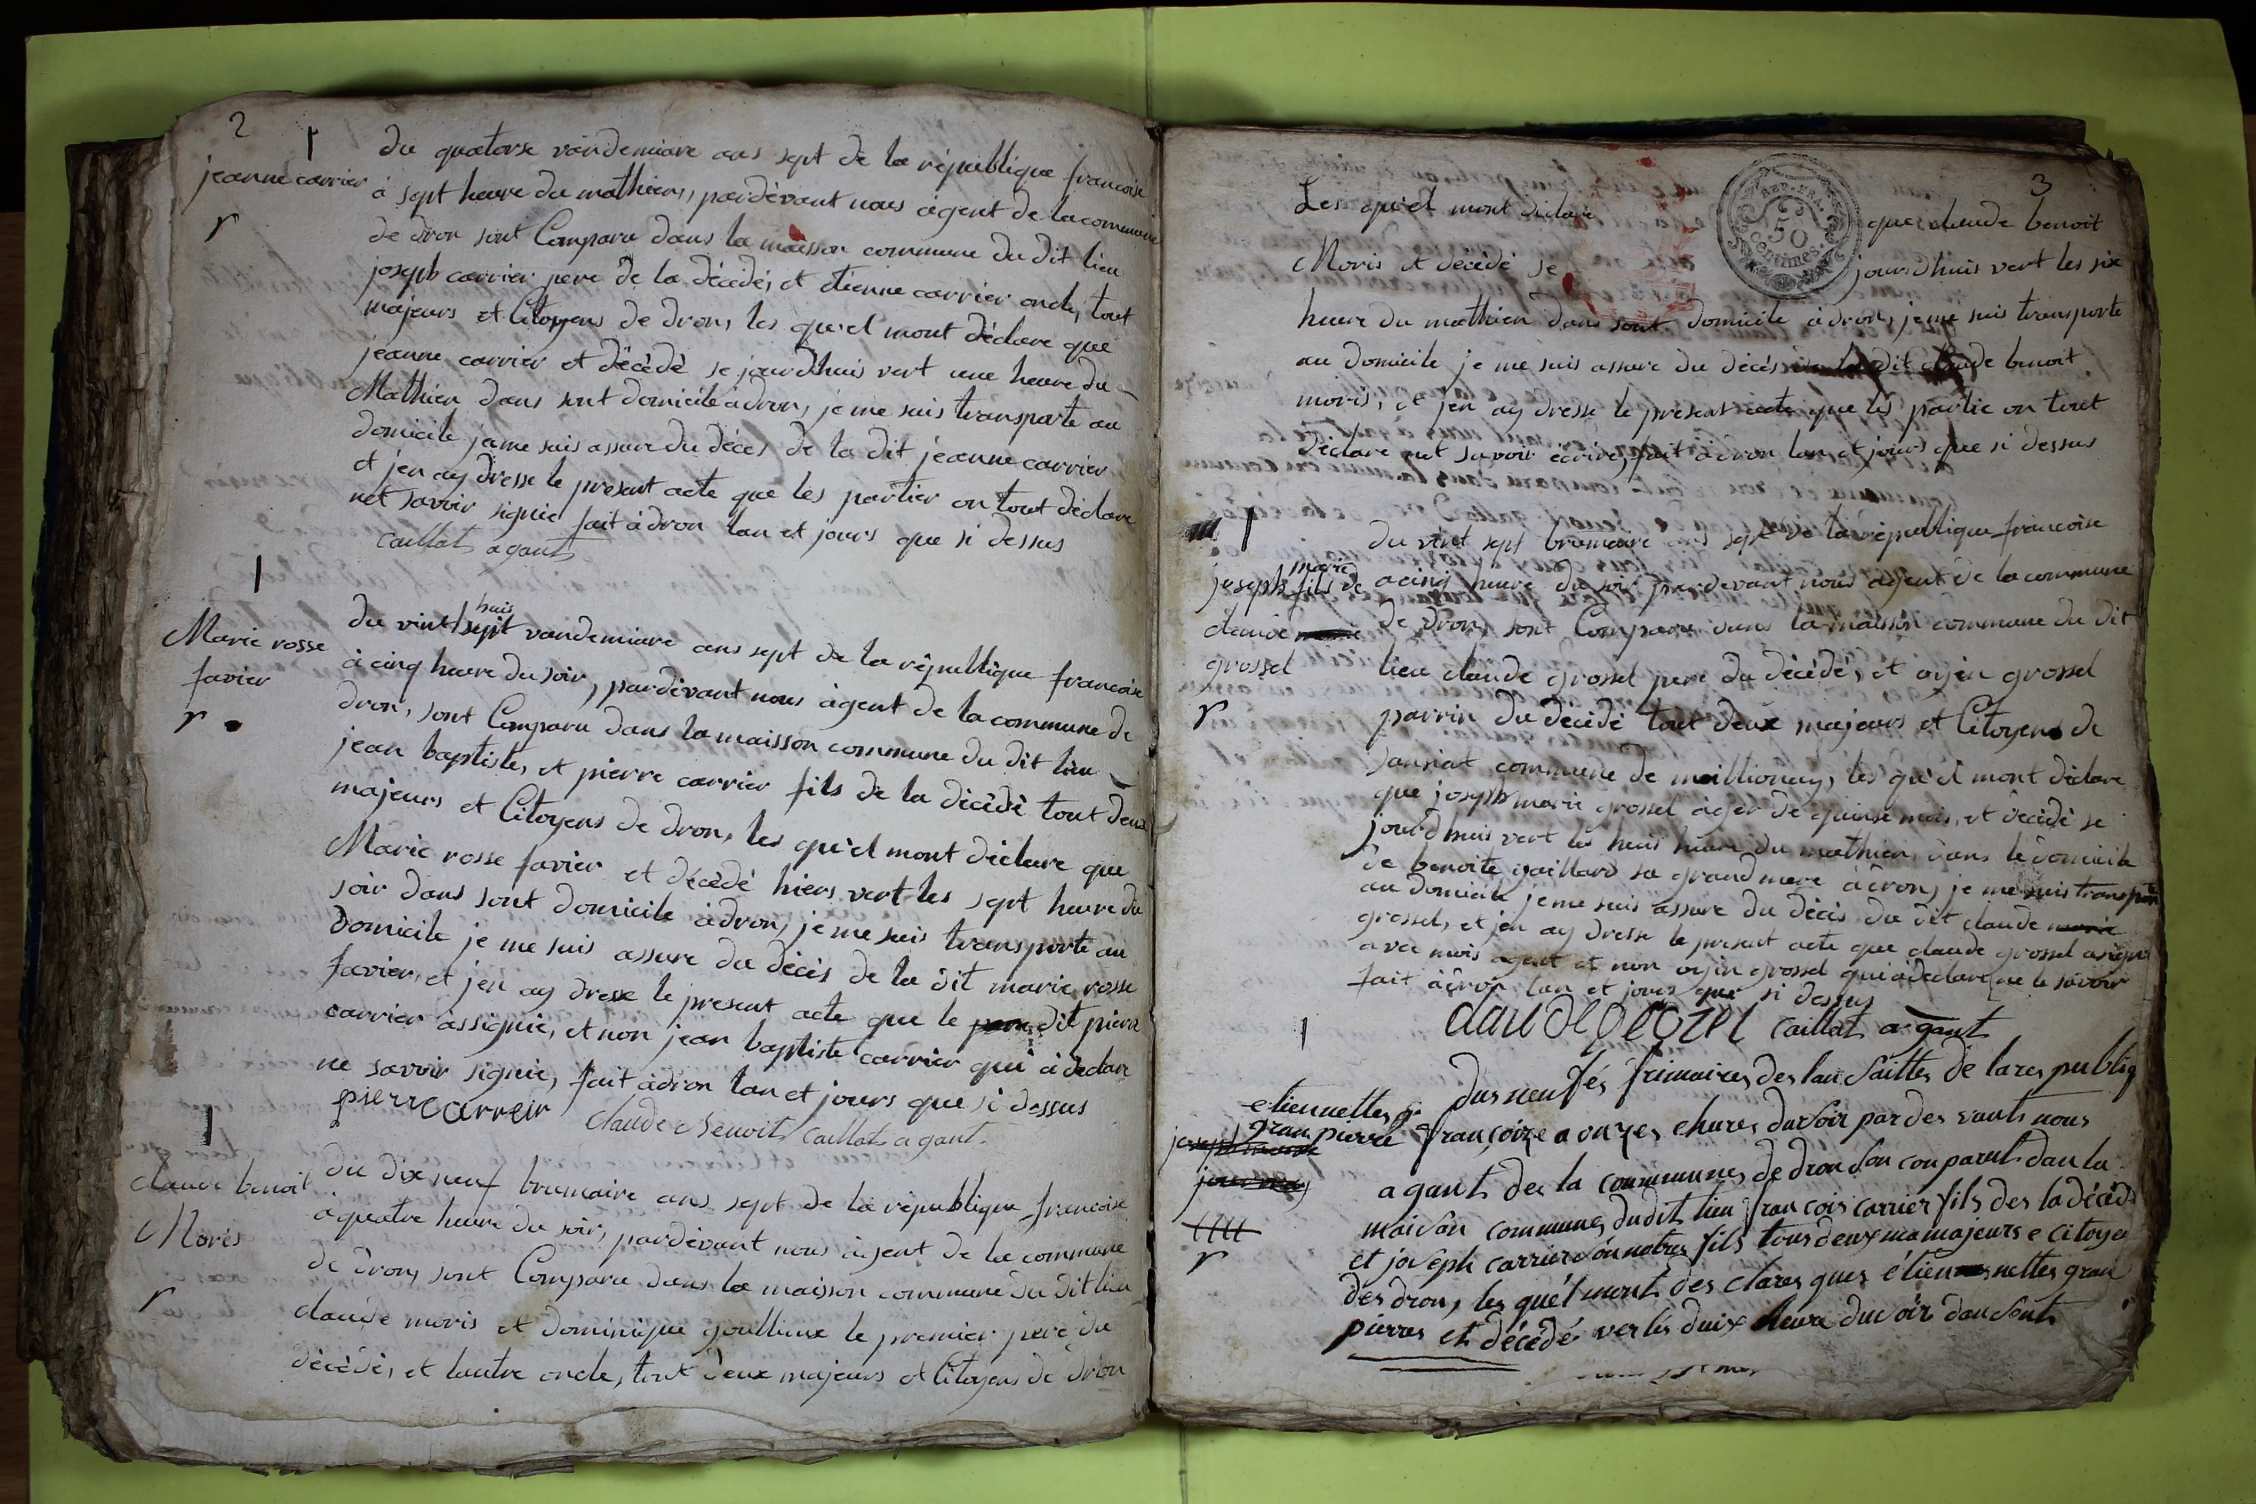 2
jeanne carrier
r
du quatorse vandemiare ans sept de la république francoise
à sept heure du mathien, pardevant nous àgent de la commune
de dron sont Comparu dans la maisson commune du dit lieu
joseph carrier pere de la décédé, et etienne carrier oncle, tout
majeurs et Citoyens de dron, les qu'el mont déclare que
jeanne carrier et décédé se jourdhuis vert une heure du
Mathien dans sont domicile à dron, je me suis transporte au
domicile je me suis assure du déces de la dit jeanne carrier
et jen ay dresse le present acte que les partier on tout déclare
net savoir signie fait à dron lan et jours que si dessus
caillat agant
Marie rosse
favier
r
du vint huis sept vandemiare ans sept de la république francoise
à cinq heure du soir, pardevant nous àgent de la commune de
dron, sont Comparu dans la maisson commune du dit lieu
jean baptiste, et pierre carrier fils de la décédé tout deux
majeurs et Citoyens de dron, les qu'el mont déclare que
Marie rosse favier et décédé hiers vert les sept heure du
soir dans sont domicile à dron, je me suis transporte au
domicile je me suis assure du décès de la dit marie rosse
favier, et jen ay dresse le present acte que le dit piere
carrier àssignie, et non jean baptiste carrier qui à declare
ne savoir signie, fait à dron lan et jours que si dessus
pierre carreir claude Benoit caillat agant
claude benoit
Moris
r
du dix neuf brumaire ans sept de la république francoise
à quatre heure du soir, pardevant nous àgent de la commune
de dron, sont Comparu dans la maisson commune du dit lieu
claude moris et dominique goullioux le premier pere du
décédé, et lautre oncle, tout deux majeurs et Citoyens de dron
3
REP. FRA.
50
centimes
Les qu'el mont déclare que claude benoit
Moris et décédé se jourdhuis vert les six
heure du mathien dans sont domicile à dron, je me suis transporte
au domicile je me suis assure du décès dit claude benoit
moris, et jen ay dresse le present acte que les partie on tout
déclare net savoir ecrire, fait à dron lan et jours que si dessus
joseph marie fils de
claude marie
grossel
r
du vint sept brumaire ans sept de la république francoise
a cinq heure du soir pardevant nous àgent de la commune
de dron, sont Comparu dans la maisson commune du dit
lieu claude grossel pere du décédé, et oyin grossel
parrin du décédé tout deux majeurs et Citoyens de
commune de maillionay, les qu'el mont déclare
que joseph marie grossel àger de quinse mois, et décédé se
jourdhuis vert les huis heure du mathien dans le domicile
de benoite gaillard sa grand mere à dron, je me suis transporte
au domicile je me suis assure du décès du dit claude marie
grossel, et jen ay dresse le present acte que claude grossel a signe
avec mois agent et non oyin grossel qui à declare ne le savoir
fait à dron lan et jours que si dessus
claude grozel caillat agant
etiennettes
gran pierre
r
dus neufés frimaires des lan saittes de la res publiq
françoize a onzes ehures du soir par des vants nous
agant des la communnes de dron son conparut dan la
maison communes dudit lieu francois carrier fils des la décéd
et joseph carrier son notres fils tous deux ma majeurs e citoyen
des dron, les quél monts des clares ques étiennes nettes gran
pierres et décédés ver lés duix heura du soir dan sonts